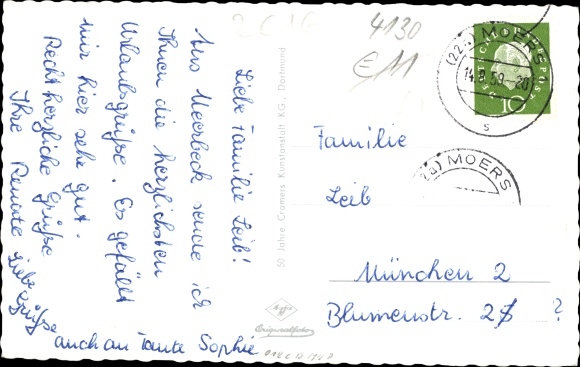 4130
E 11
Liebe Familie Leib!
Aus Meerbeck sende ich
Ihnen die herzlichsten
Urlaubsgrüße. Es gefällt
mir hier sehr gut.
Recht herzliche Grüße
Ihre Renate
Liebe Grüße
auch an Tante Sophie
50 Jahre Cramers Kunstanstalt KG., Dortmund
Agfa
Originalfoto
(22a) MOERS
14.8.59-20
s
DEUTSCHE BUNDESPOST
10
(22a) MOERS
Familie
Leib
München 2
Blumenstr. 28 ?